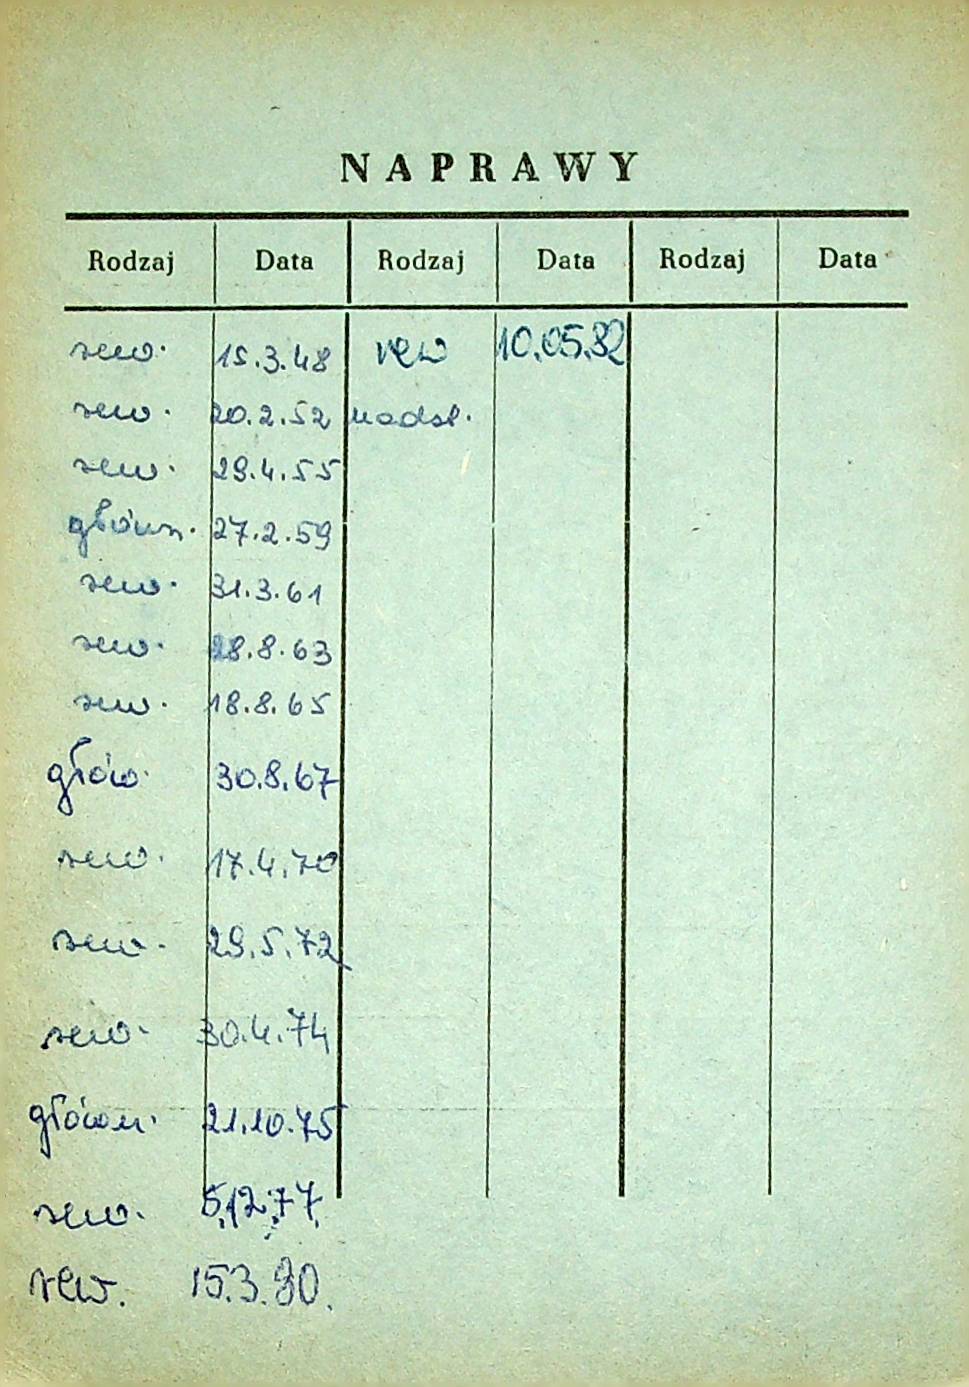 NAPRAWY
Rodzaj Data Rodzaj Data Rodzaj Data
rew. 15.3.48 rew 10.05.82
rew. 20.2.52 nadsl.
rew. 29.4.55
główn. 27.2.59
rew. 31.3.61
rew. 28.8.63
rew. 18.8.65
głów. 30.8.67
rew. 17.4.70
rew. 29.5.72
rew. 30.4.74
główn. 21.10.75
rew. 5.12.77.
rew. 15.3.80.